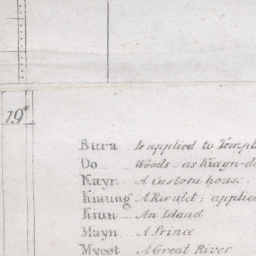 19°
Bura Is applied to Templ
Do Woods - as Kiayn-d
Kayn A Custom house
Kiaung A Rivulet; applie
Kiun An Island
Mayn A Prince
Myeet A Great River